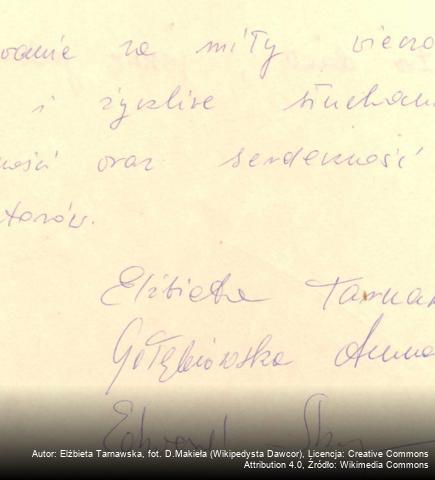 wanie za miły wieczo
i życzliwe słuchan
ności oraz serdeczność
torów.
Elżbieta Tarnaw
Gołębiowska Anna
Edward
Autor: Elżbieta Tarnawska, fot. D.Makieła (Wikipedysta Dawcor), Licencja: Creative Commons
Attribution 4.0, Źródło: Wikimedia Commons